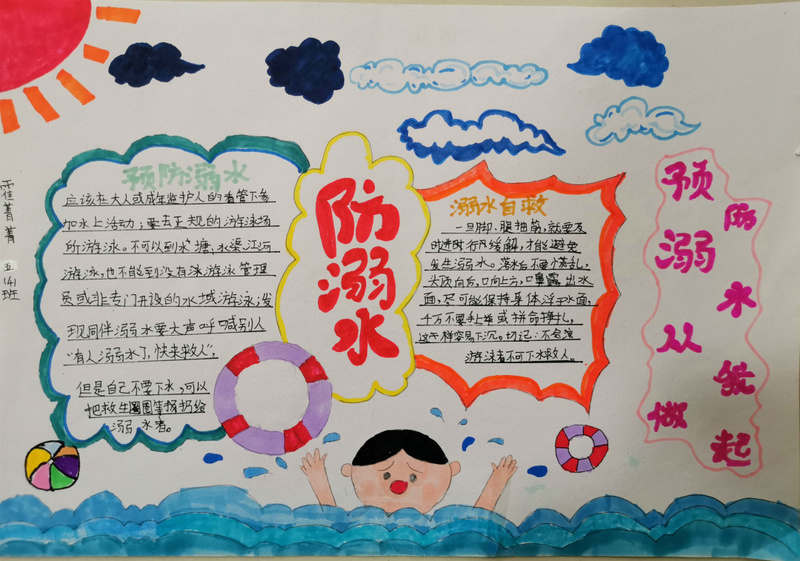 预防溺水
应该在大人或成年监护人的看管下参
加水上活动,要去正规的游泳场
所游泳。不可以到水塘、水渠江河
游泳,也不能到没有泳游泳管理
员或非专门开设的水域游泳,发
现同伴溺水要大声呼喊别人
"有人溺水了,快来救人",
但是自己不要下水,可以
把救生圈圈等报扔给
溺水者。
防
溺
水
溺水自救
一旦脚、腿抽筋,就要及
时进行缓解,才能避免
发生溺水。落水后不要慌乱,
头顶向后,口向上方,口鼻露出水
面,尽可能保持身体浮于水面,
千万不要手上举或拼命挣扎,
这样容易下沉。切记:不会游
游泳者不可下水救人。
预防
溺水
从
做起
菁菁
班